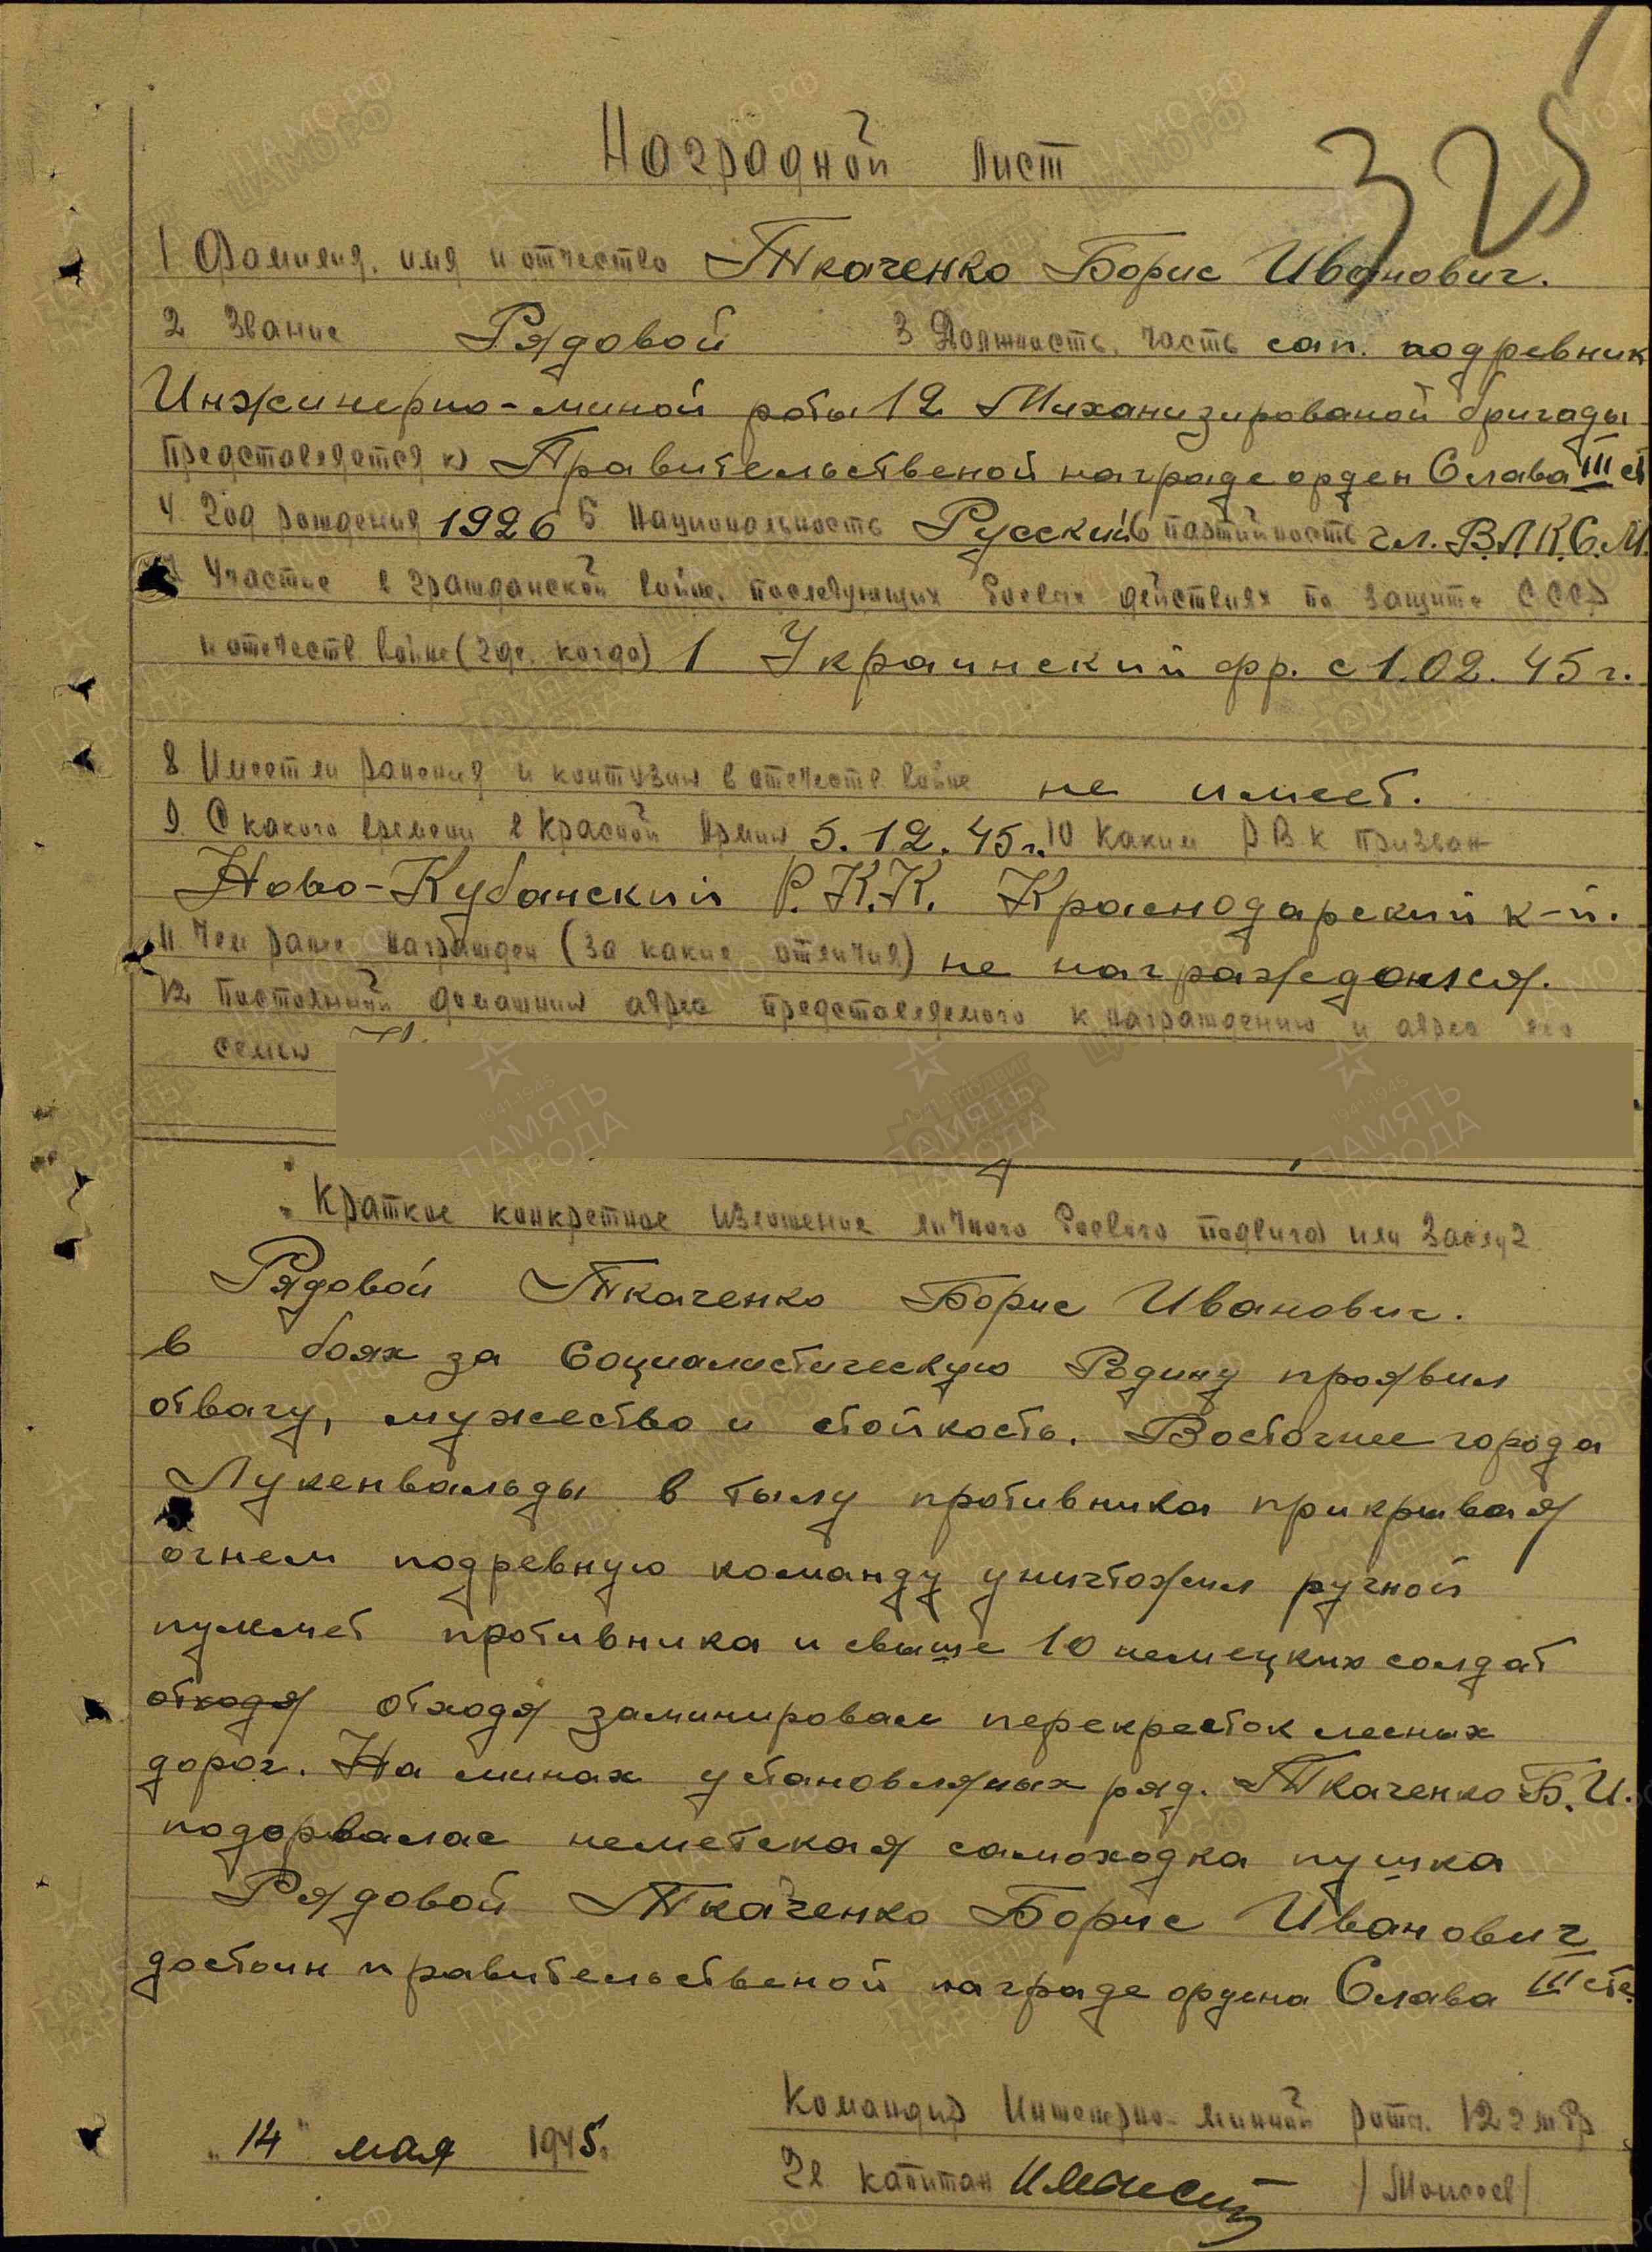 325
Наградной лист
1 Фамилия, имя и отчество Ткаченко Борис Иванович.
2 Звание Рядовой 3 Должность, часть сап. подревник
Инжинерно-миной роты 12 Миханизированой бригады
Представляется к) Правительственой награде орден Слава III ст
4. Год рождения 1926 5. Национальность Русский 6 партийность чл. В.Л.К.С.М.
7 Участие в гражданской войне, последующих боевых действиях по защите СССР
и отечеств. войне (где, когда) 1 Украинский фр. с 1.02.45 г.
8 Имеет ли ранения и контузии в отечеств. войне не имеет.
9. С какого времени в Красной Армии 5.12.45 г. 10 Каким РВК призван
Ново-Кубанский Р.К.К. Краснодарский к-й.
11. Чем ранее награжден (за какие отличия) не награждался.
12 Постоянный домашний адрес представляемого к награждению и адрес его
семьи
Краткое конкретное изложение личного боевого подвига или заслуг
Рядовой Ткаченко Борис Иванович.
в боях за Социалистическую Родину проявил
отвагу, мужество и стойкость. Восточнее города
Лукенвальды в тылу противника прикрывая
огнем подревную команду уничтожил ручной
пулемет противника и свыше 10 немецких солдат
отходя отходя заминировал перекресток лесных
дорог. На минах установляных ряд. Ткаченко Б.И.
подорвалас неметская самоходка пушка
Рядовой Ткаченко Борис Иванович
достоин правительственой награде ордена Слава III сте.
Командир Инженерно-минной роты 12 гмбр
"14" мая 1945г.
Гв капитан /Моисеев/
ЦАМО.РФ
1941-1945
ПАМЯТЬ
НАРОДА